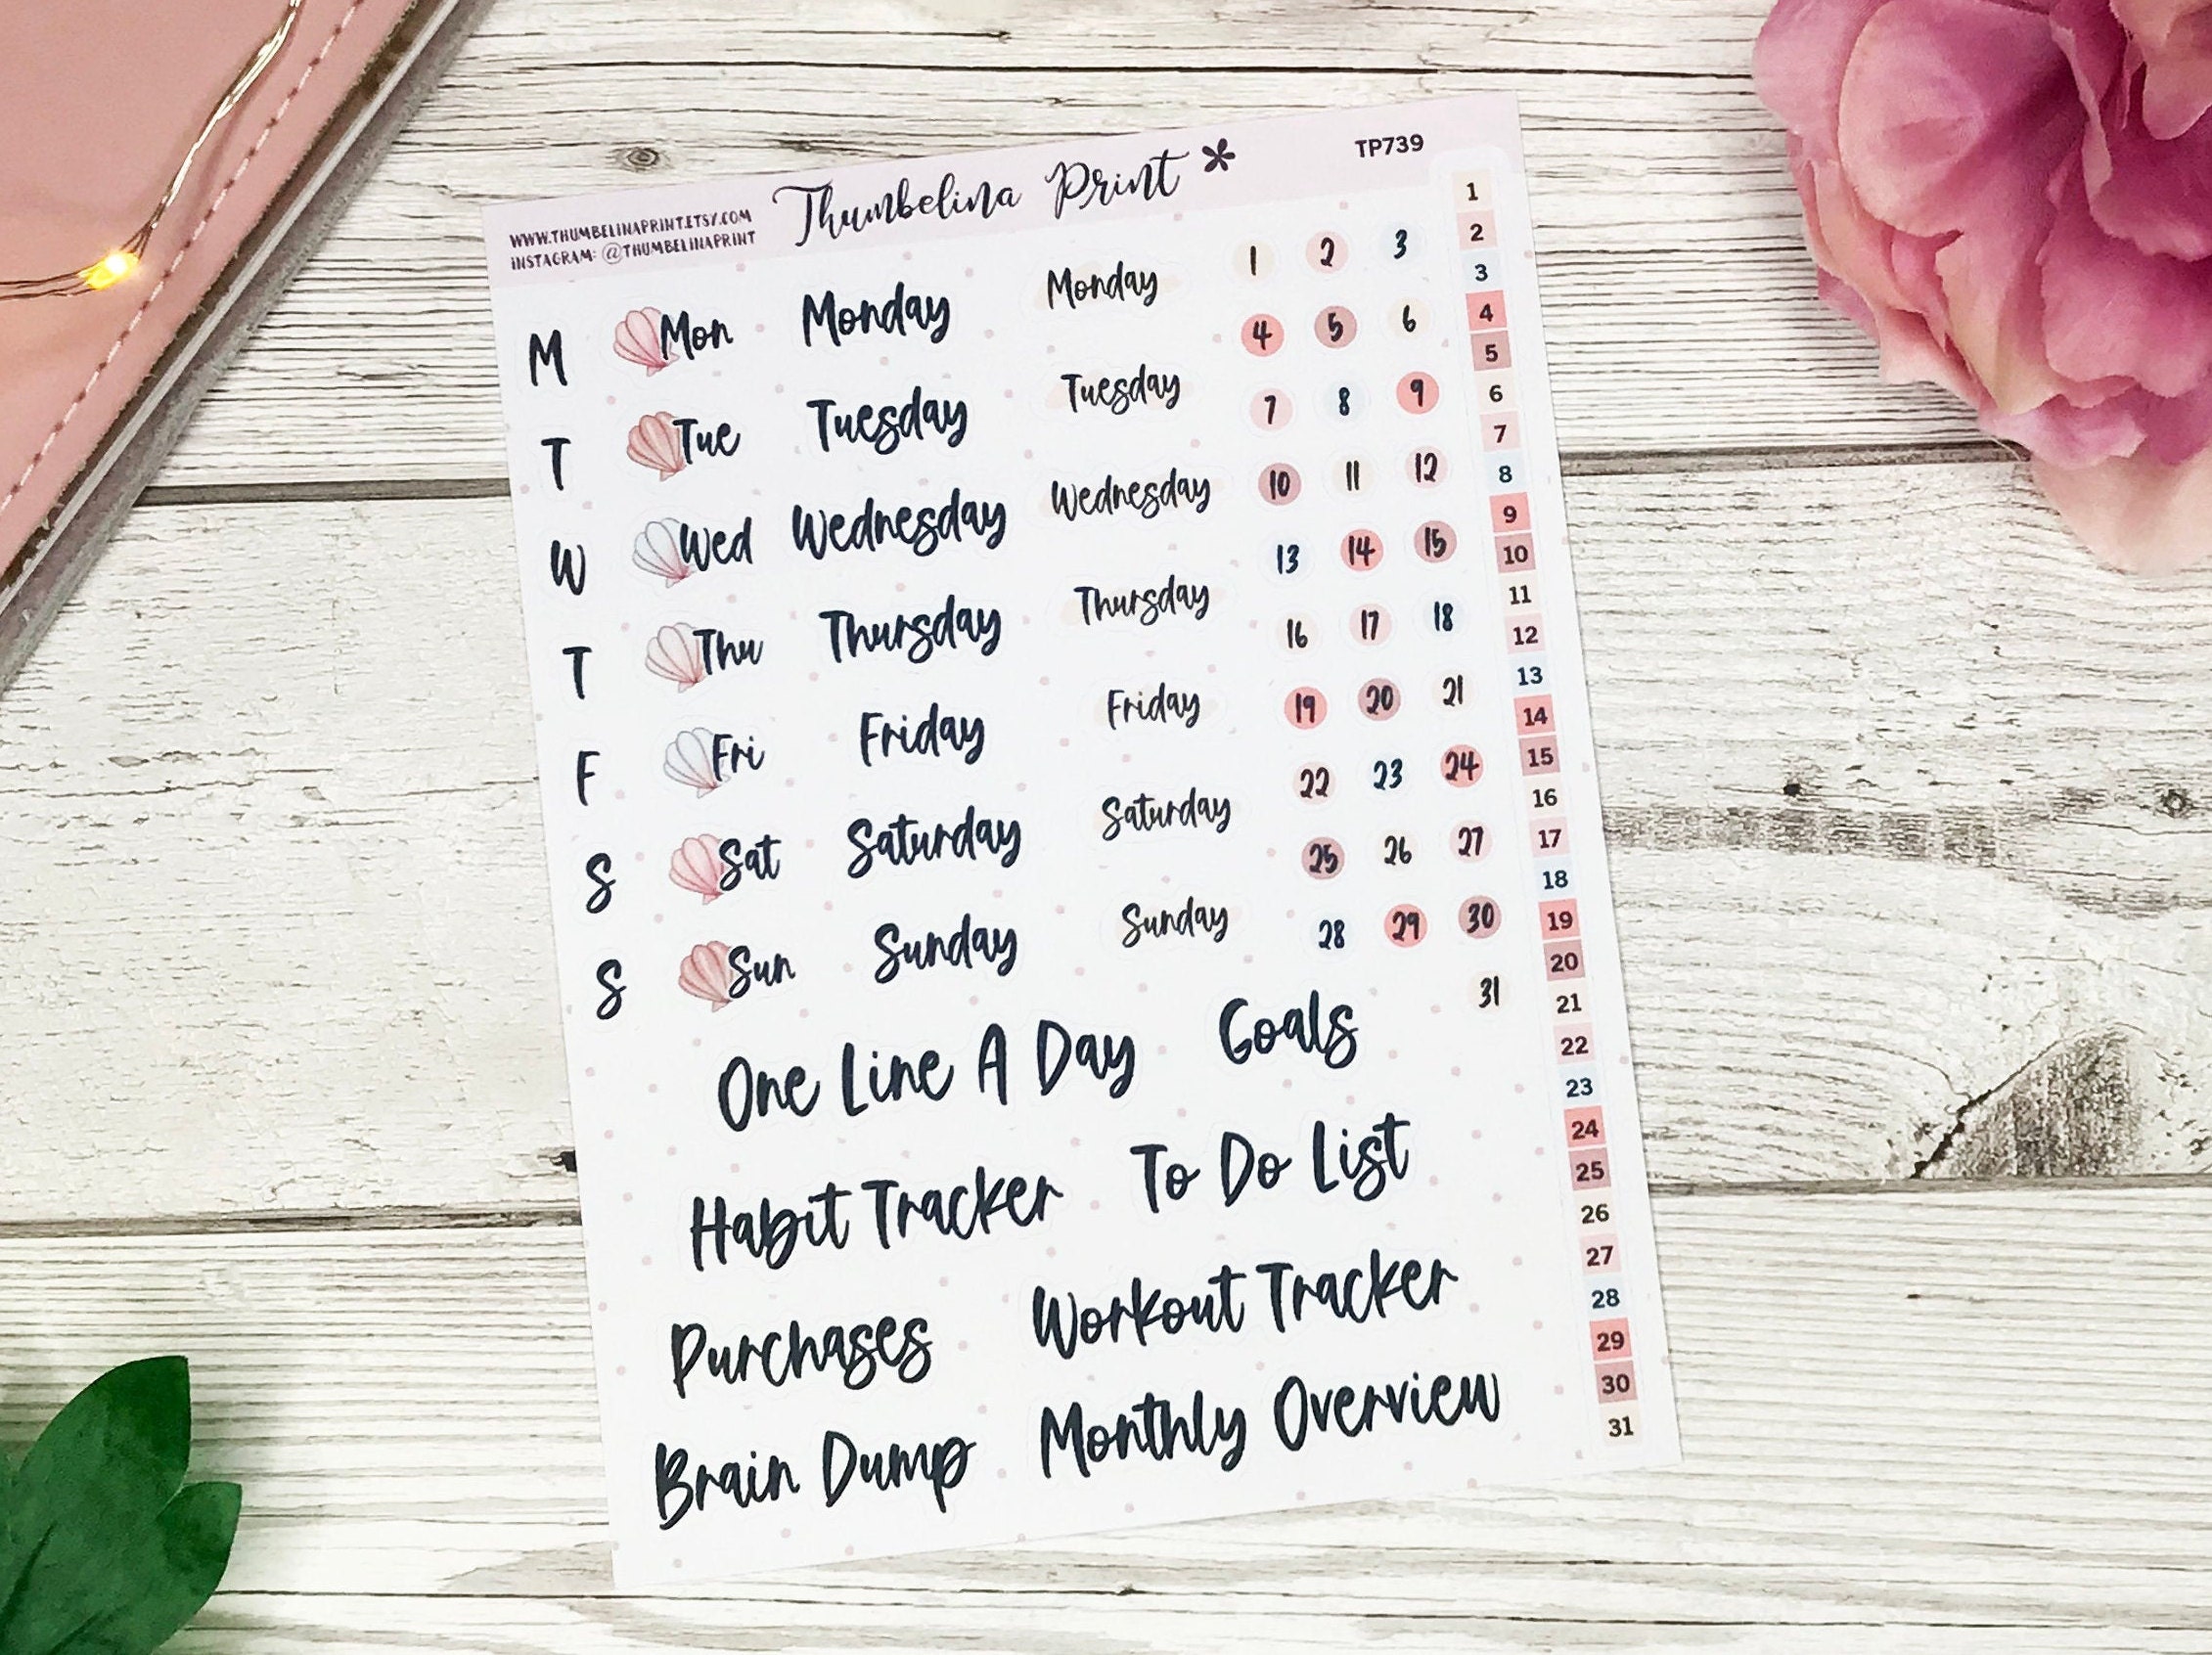 WWW.THUMBELINAPRINT.ETSY.COM
INSTAGRAM: @THUMBELINAPRINT
Thumbelina Print *
TP739
M Mon Monday Monday
T Tue Tuesday Tuesday
W Wed Wednesday Wednesday
T Thu Thursday Thursday
F Fri Friday Friday
S Sat Saturday Saturday
S Sun Sunday Sunday
1 2 3
4 5 6
7 8 9
10 11 12
13 14 15
16 17 18
19 20 21
22 23 24
25 26 27
28 29 30
31
One Line A Day Goals
Habit Tracker To Do List
Purchases Workout Tracker
Brain Dump Monthly Overview
1
2
3
4
5
6
7
8
9
10
11
12
13
14
15
16
17
18
19
20
21
22
23
24
25
26
27
28
29
30
31